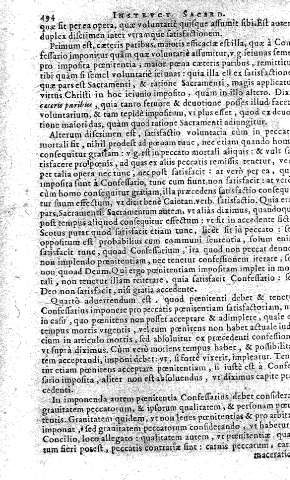 494 INSTRVCT. SACERD.
quæ sit per ea opera, quæ voluntariè quisque assumit sibi. Est autem
duplex discrimen inter vtramque satisfactionem.
Primum est, cæteris paribus, maioris efficaciæ est illa, quæ à Con-
fessario imponitur quàm quæ voluntariè assumitur, v. g. ieiunus semel
pro imposita pœnitentia; maior pœna cæteris paribus, remittitur
tibi quàm si semel voluntariè ieiunas: quia illa est ex satisfactione
quæ pars est Sacramenti, & ratione Sacramenti, magis applicatur
virtus Christi in hoc ieiunio imposito, quàm in illo altero. Dixi
cæteris paribus, quia tanto feruore & deuotione posses illud facere
voluntarium, & tam tepidè impositum, vt plus esset, quod ex deuo-
tione maiori das, quàm quod ratione Sacramenti adiungitur.
Alterum discrimen est, satisfactio voluntaria cùm in peccato
mortali sit, nihil prodest ad pœnam tunc, nec etiam quando homo
consequitur gratiam: v. g. sit in peccato mortali aliquis: & vult sa-
tisfacere pro pœnis, ad quas ex aliis peccatis remissis tenetur, ver.
per talia opera nec tunc, nec post satisfacit: at verò per ea, quæ
imposita sunt à Confessario, tunc cum fiunt, non satisfacit: at verò
cùm homo consequitur gratiam, illa præcedens satisfactio consequi-
tur suum effectum, vt dicit benè Caietan. verb. satisfactio. Quia erat
pars Sacramenti: Sacramentum autem, vt aliàs diximus, quandoque
post tempus aliquod consequitur effectum: vnde in
Scotus putat quod satisfacit etiam tunc, licèt sit in peccato: sed
oppositum est probabilius cum communi sententia, solùm enim
satisfacit tunc, quoad Confessarium, ita quòd non peccat denuo
non implendo pœnitentiam, nec tenetur confessionem iterare, sed
non quoad Deum. Qui ergo pœnitentiam impositam implet in mor-
tali, non tenetur illam reiterare, quia satisfacit Confessario: sed
Deo non satisfacit, nisi gratia accedente.
Quartò aduertendum est, quòd pœnitenti debet & tenetur
Confessarius imponere pro peccatis pœnitentiam satisfactoriam, nisi
in casu, quo pœnitens non posset acceptare & adimplere, quale est
tempus mortis vrgentis, vel cùm pœnitens non habet actuale iudi-
cium in articulo mortis, sed absoluitur ex præcedenti confessione,
vt suprà diximus. Cùm verò moriens tempus habet, & possibilita-
tem acceptandi, imponi debet: vt, si fortè vixerit, impleatur. Tene-
tur etiam pœnitens acceptare pœnitentiam, si iustè est à Confes-
sario imposita, aliter non est absoluendus, vt diximus capite præ-
cedenti.
In imponenda autem pœnitentia Confessarius debet considerare
grauitatem peccatorum, & ipsorum qualitatem, & personam pœni-
tentis. Grauitatem quidem, vt non leues pœnitentias & pro arbitrio
imponat, sed grauitatem peccatorum considerando, vt habetur in
Concilio, loco allegato: qualitatem autem, vt pœnitentiæ, quan-
tum fieri potest, peccatis contrariæ sint: carnis peccatum, carnis
maceratio-